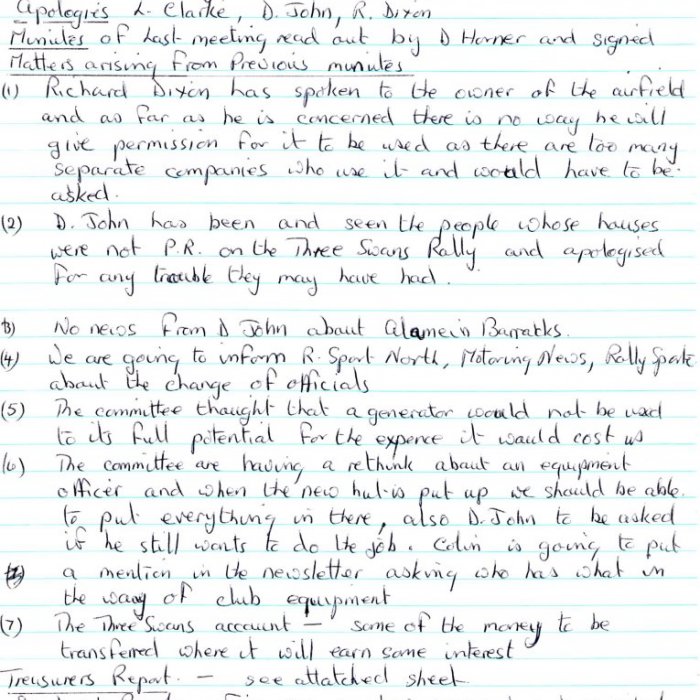 Apologies L. Clarke, D. John, R. Dixon
Minutes of Last meeting read out by D Horner and signed
Matters arising from Previous minutes
(1) Richard Dixon has spoken to the owner of the airfield
and as far as he is concerned there is no way he will
give permission for it to be used as there are too many
separate companies who use it and would have to be
asked.
(2) D. John has been and seen the people whose houses
were not P.R. on the Three Swans Rally and apologised
for any trouble they may have had.
3) No news from D John about Alamein Barratks.
(4) We are going to inform R. Sport North, Motoring News, Rally Sport
about the change of officials
(5) The committee thought that a generator would not be used
to its full potential for the expence it would cost us
(6) The committee are having a rethink about an equipment
officer and when the new hut is put up we should be able
to put everything in there, also D. John to be asked
if he still wants to do the job. Colin is going to put
a mention in the newsletter asking who has what in
the way of club equipment
(7) The Three Swans account — some of the money to be
transferred where it will earn some interest
Treasurers Report. — see attatched sheet